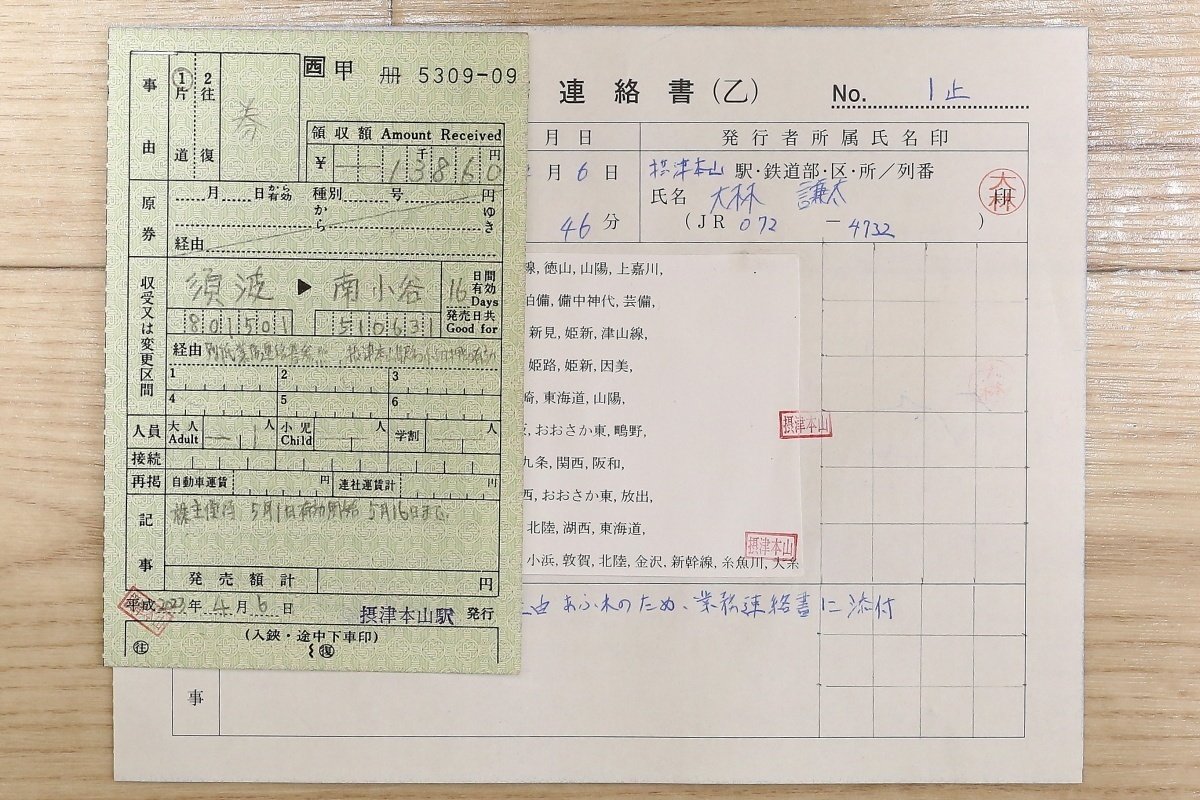 事由
1片道
2往復
券
西 甲 冊 5309-09
領収額 Amount Received
¥ 13860 千 円
原券
月 日から有効 種別 号 円
から ゆき
経由
収受又は変更区間
須波 ▶ 南小谷 16 日間有効 Days
801501 510631 発売日共 Good for
経由
1 2 3
4 5 6
人員 大人 Adult 1 人 小児 Child 人 学割 人
接続
再掲 自動車運賃 円 連社運賃計 円
記事
株主優待 5月1日有効開始 5月16日まで
発売額計 円
平成 2023年 4月 6日 摂津本山駅 発行
(入鋏・途中下車印)
往 復
連絡書(乙) No. 1止
月日 発行者所属氏名印
月 6 日 摂津本山 駅・鉄道部・区・所/列番
氏名 大林 謙太
大林
46 分 (JR 072 - 4732 )
線, 徳山, 山陽, 上嘉川,
伯備, 備中神代, 芸備,
新見, 姫新, 津山線,
姫路, 姫新, 因美,
東海道, 山陽,
おおさか東, 鴫野,
九条, 関西, 阪和,
摂津本山
おおさか東, 放出,
北陸, 湖西, 東海道,
摂津本山
小浜, 敦賀, 北陸, 金沢, 新幹線, 糸魚川, 大糸
由 あふれのため、業務連絡書に添付
事